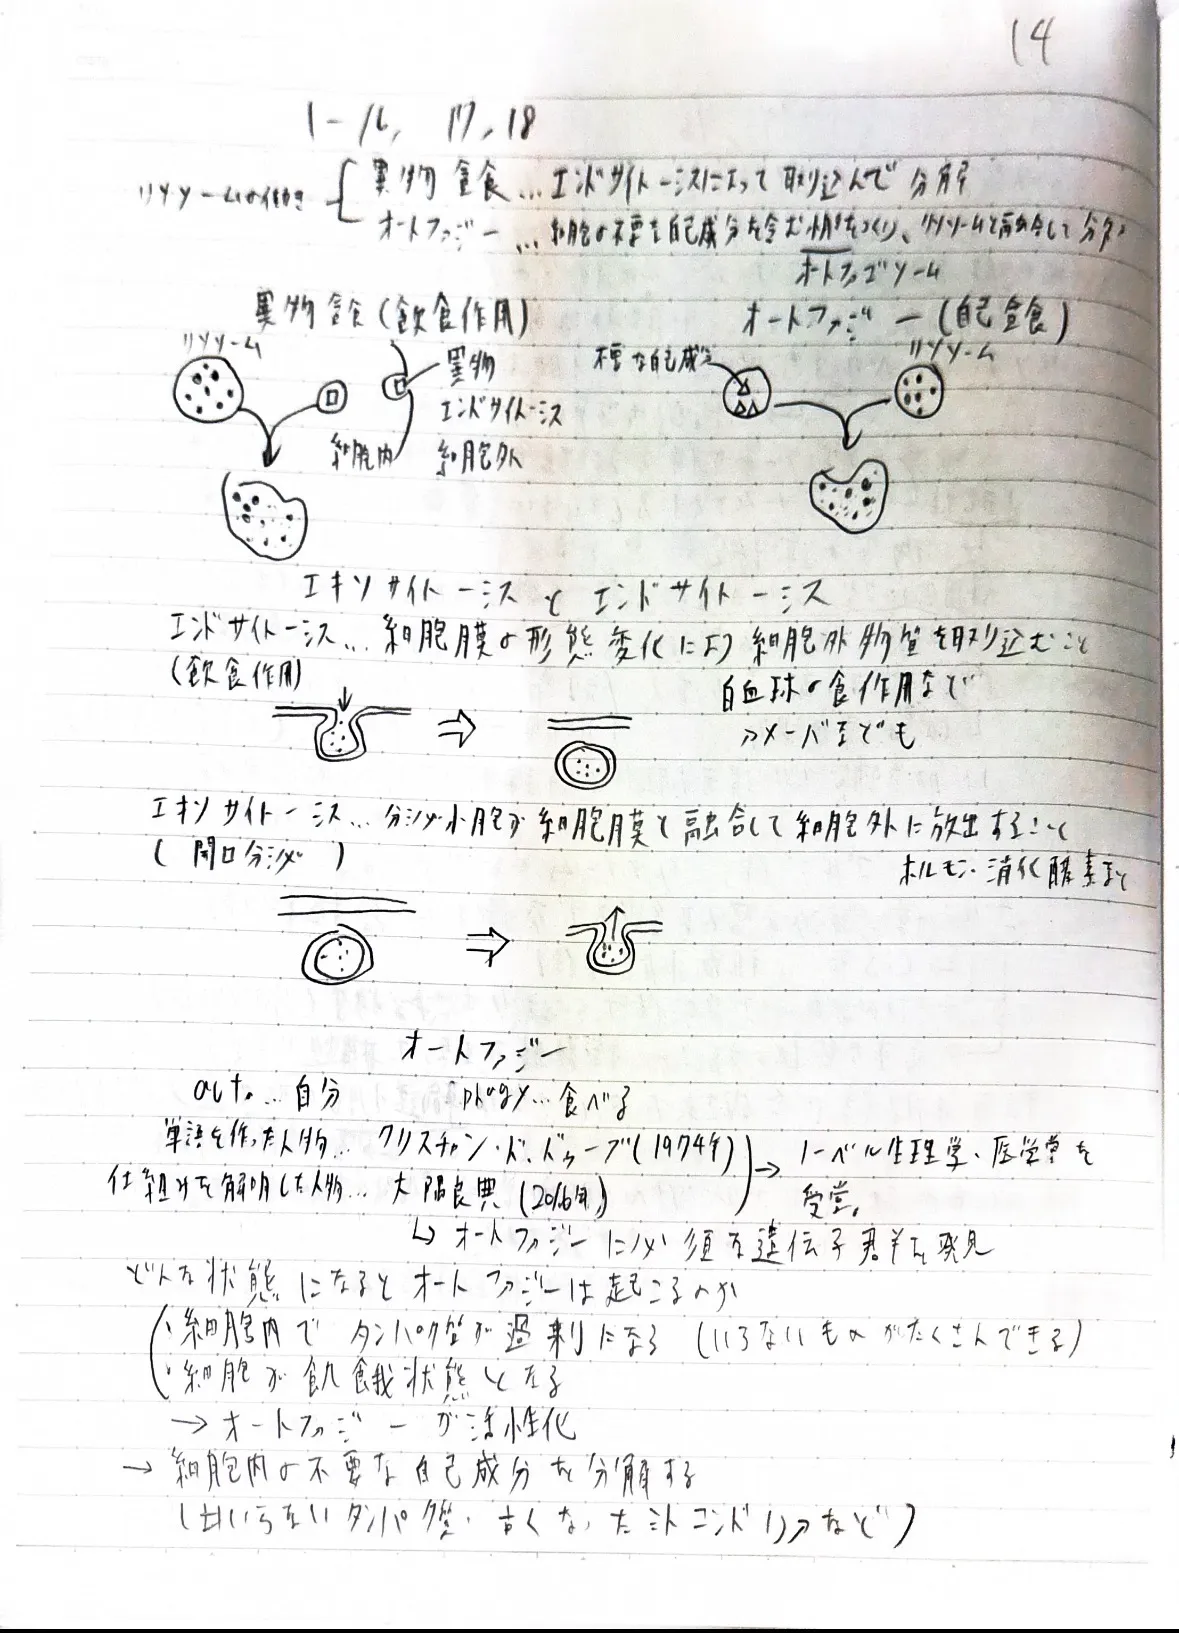 14
1-16, 17, 18
リソソームの働き
異物貪食…エンドサイトーシスによって取り込んで分解
オートファジー…細胞の不要な自己成分を含む小胞をつくり、リソソームと融合して分解
オートファゴソーム
異物貪食(飲食作用)
オートファジー(自己貪食)
リソソーム
異物
不要な自己成分
リソソーム
エンドサイトーシス
細胞内
細胞外
エキソサイトーシスとエンドサイトーシス
エンドサイトーシス…細胞膜の形態変化により細胞外物質を取り込むこと
(飲食作用)
白血球の食作用など
アメーバなども
エキソサイトーシス…分泌小胞が細胞膜と融合して細胞外に放出すること
(開口分泌)
ホルモン・消化酵素など
オートファジー
auto…自分 phagy…食べる
単語を作った人物…クリスチャン・ド・デューブ(1974年)
→ノーベル生理学・医学賞を
仕組みを解明した人物…大隅良典(2016年)
受賞。
↳オートファジーに必須な遺伝子群を発見
どんな状態になるとオートファジーは起こるのか
・細胞内でタンパク質が過剰になる(いらないものがたくさんできる)
・細胞が飢餓状態となる
→オートファジーが活性化
→細胞内の不要な自己成分を分解する
(∃いらないタンパク質・古くなったミトコンドリアなど)